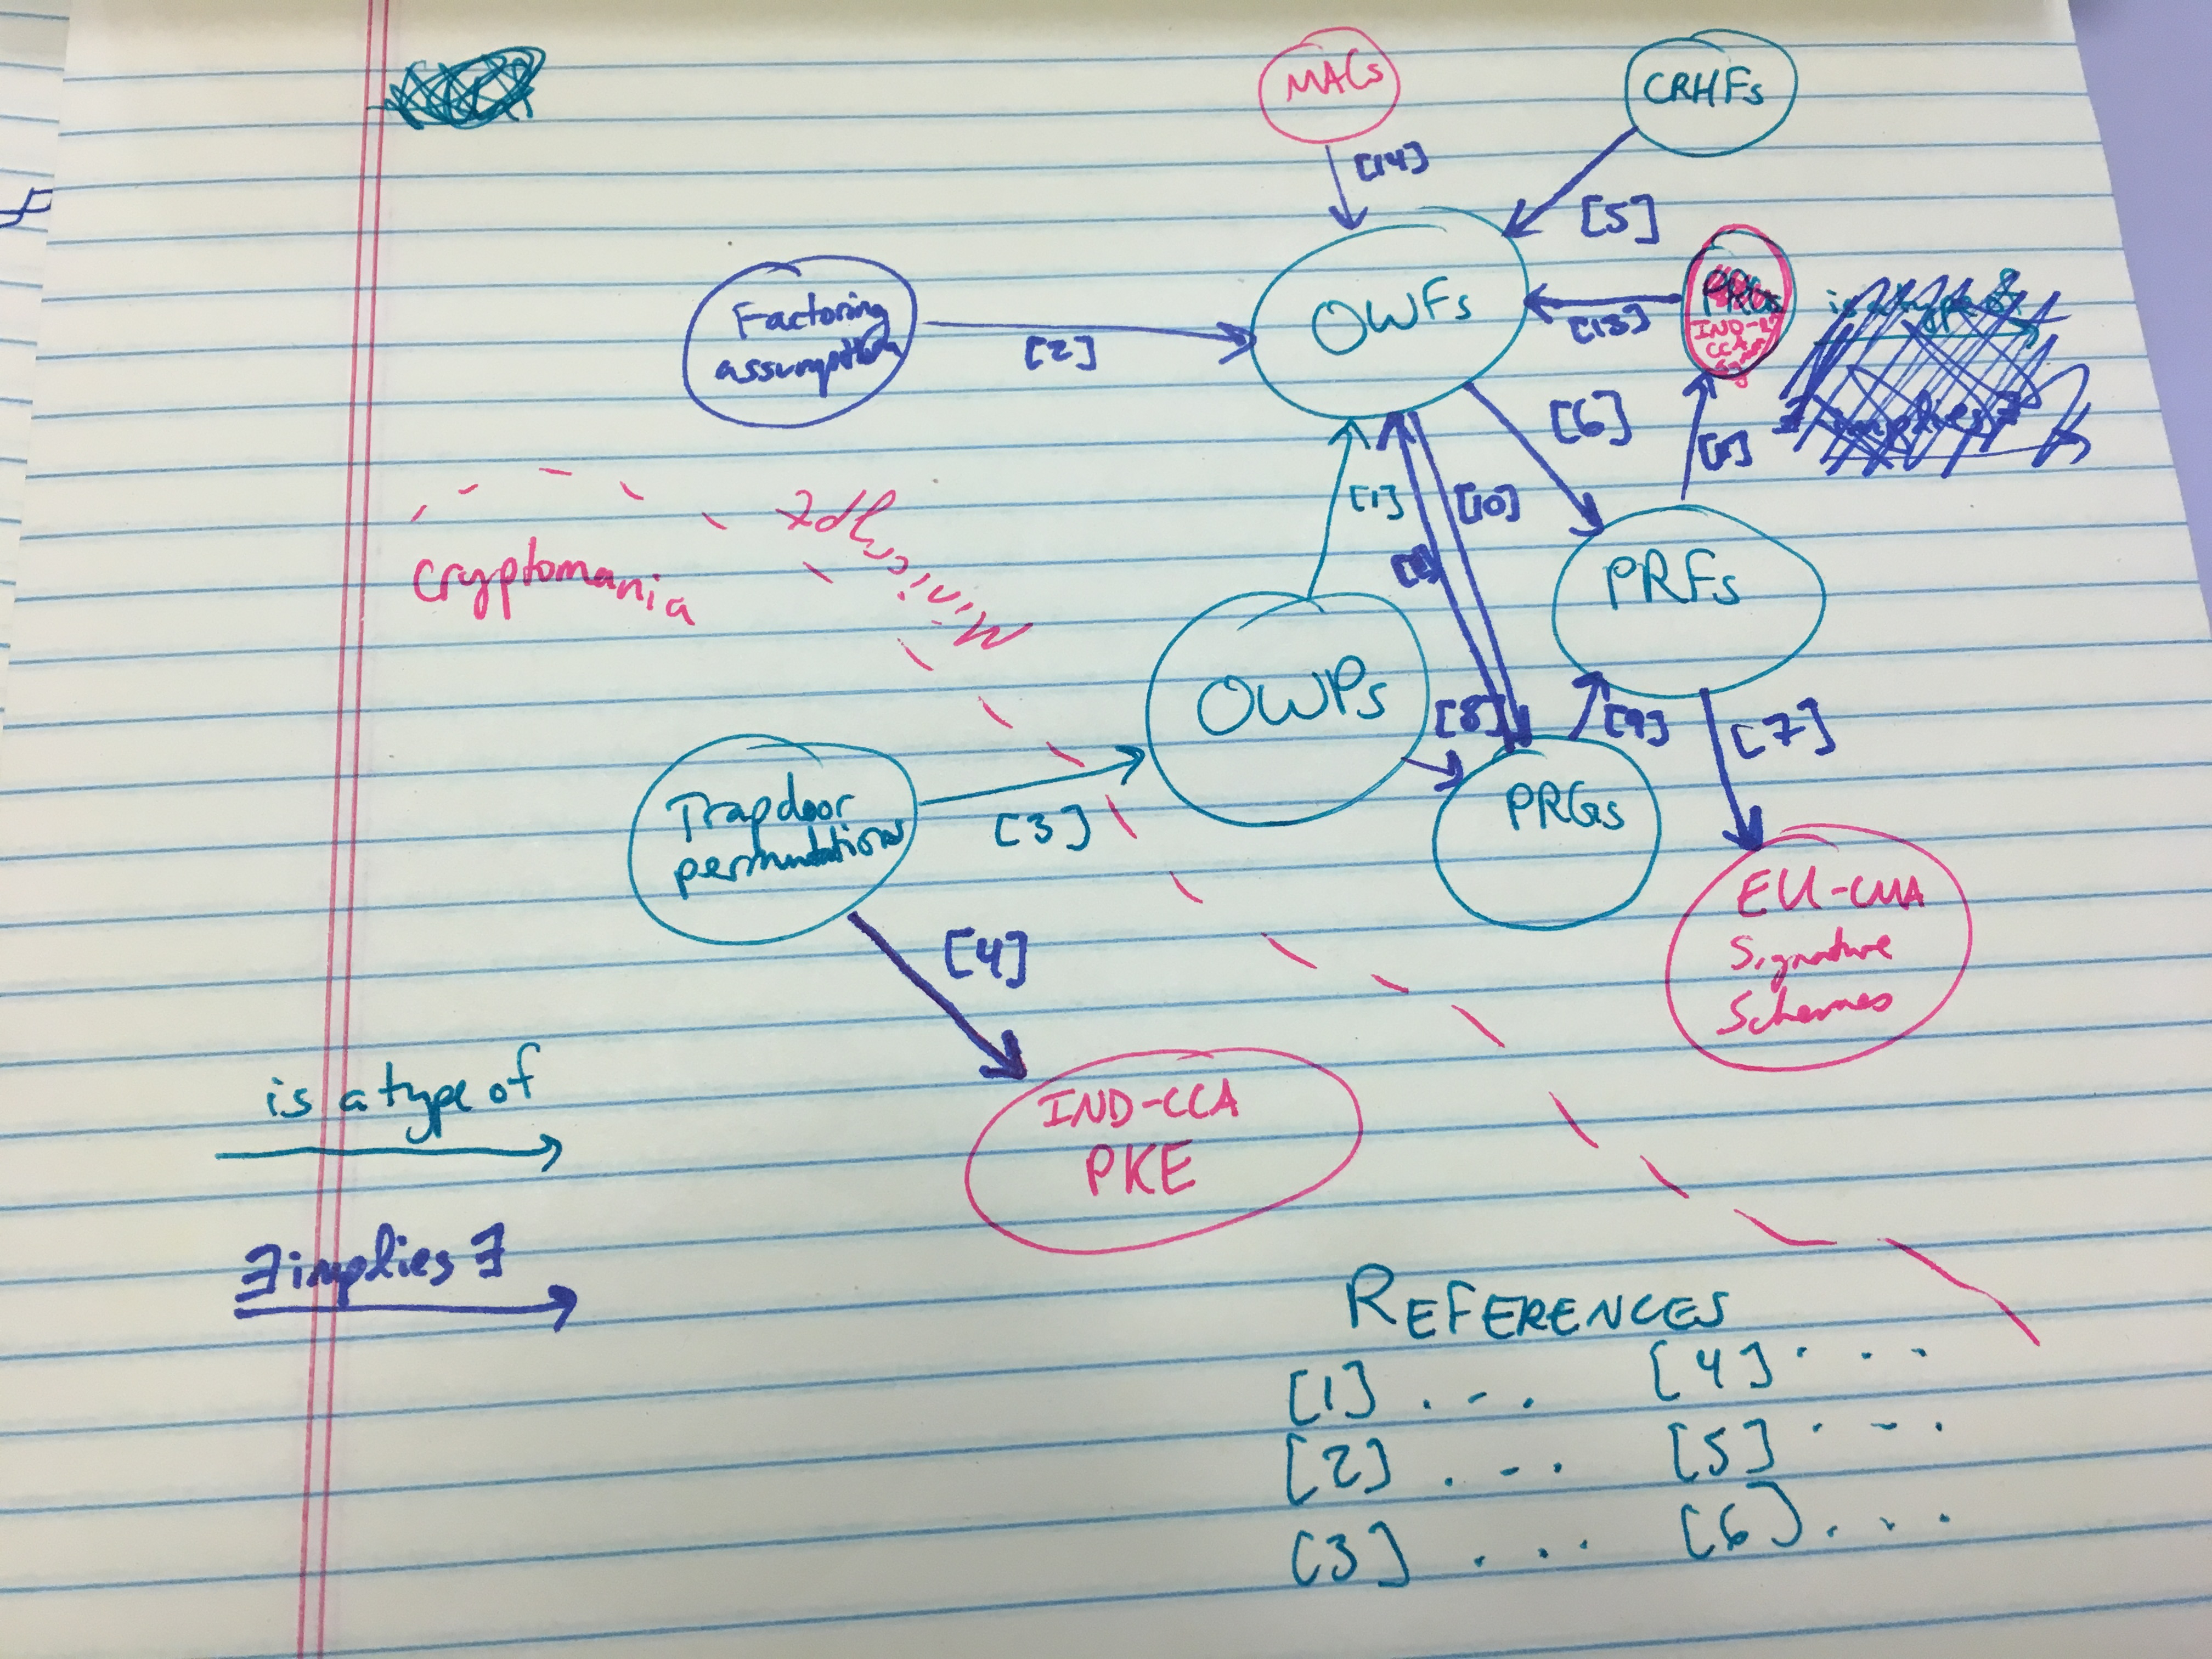 MACs
CRHFs
[14]
[5]
Factoring
assumption
[2]
OWFs
[13]
IND-
CCA
is a type of
∃ implies ∃
[6]
[1]
[10]
Cryptomania
Minicrypt
PRFs
OWPs
[8]
[9]
[7]
Trapdoor
permutations
[3]
PRGs
[4]
EU-CMA
Signature
Schemes
is a type of
IND-CCA
PKE
∃ implies ∃
REFERENCES
[1] . . .
[4] . . .
[2] . . .
[5] . . .
[3] . . .
[6] . . .